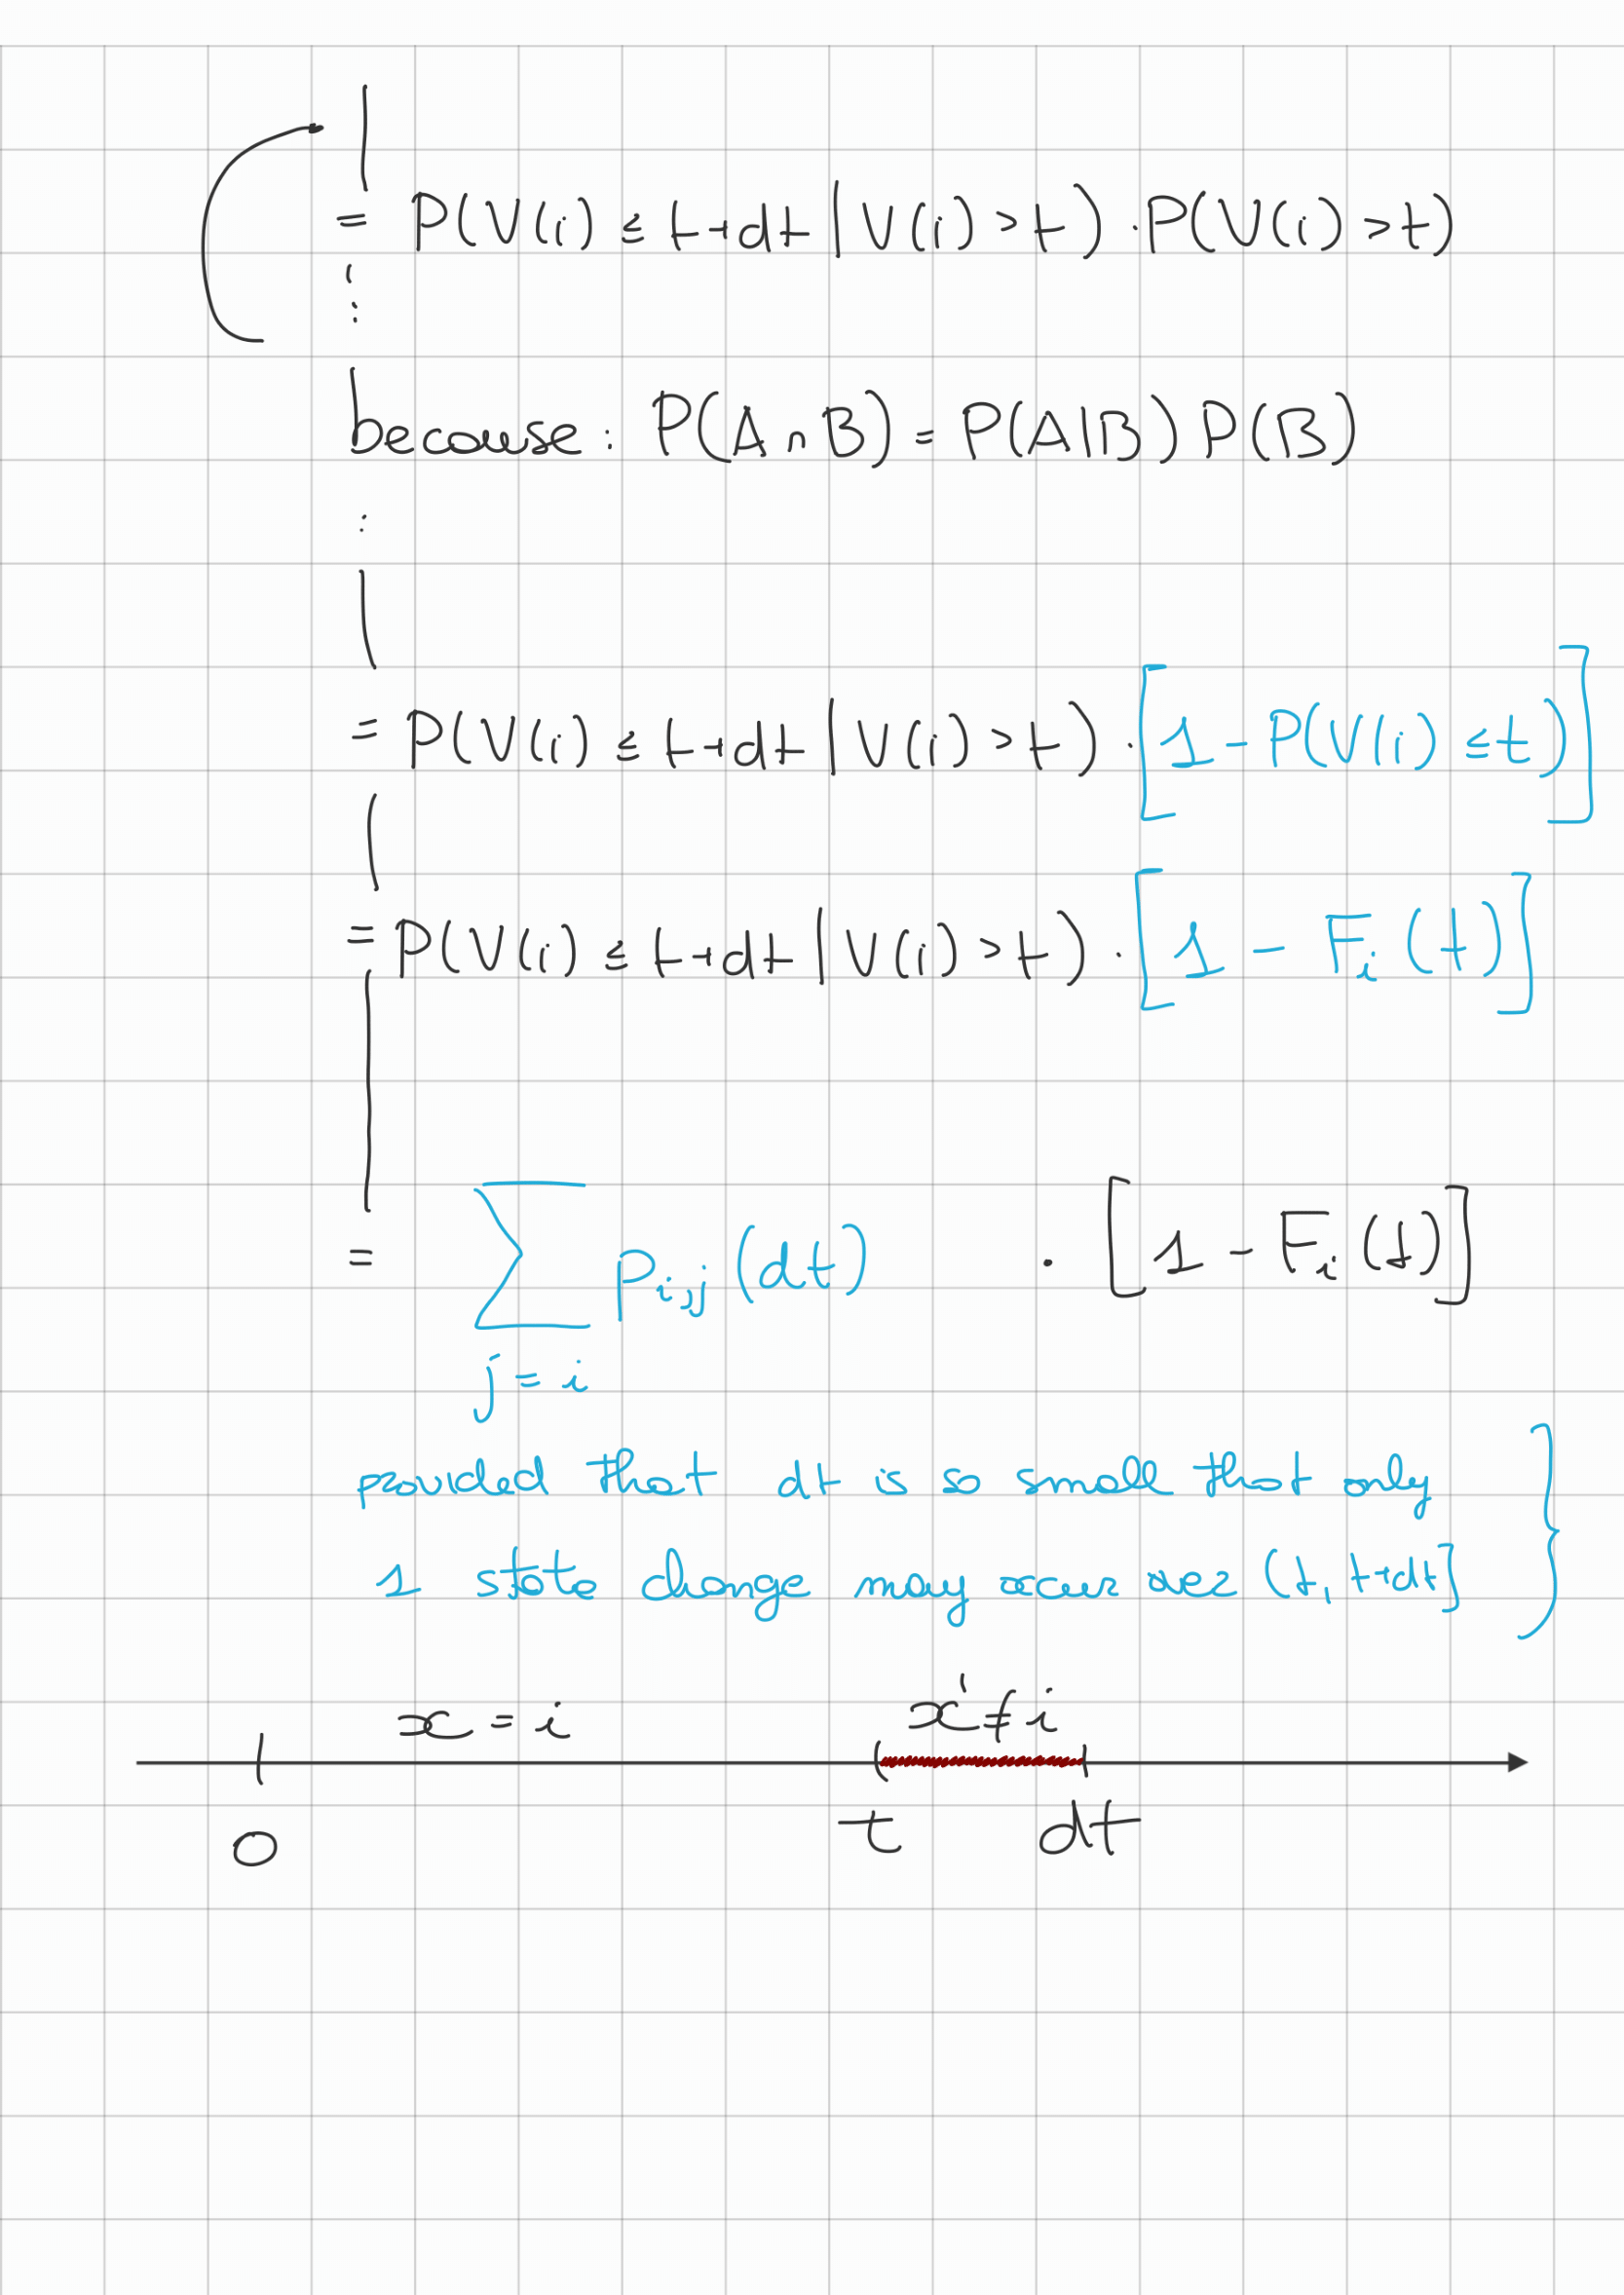 = P(V(i) ≤ t+dt | V(i) > t) · P(V(i) > t)
because: P(A∩B) = P(A|B) P(B)
= P(V(i) ≤ t+dt | V(i) > t) · [1 - P(V(i) ≤ t)]
= P(V(i) ≤ t+dt | V(i) > t) · [1 - F_i(t)]
= ∑ p_ij(dt) · [1 - F_i(t)]
j = i
provided that dt is so small that only
1 state change may occur over (t, t+dt]
x = i x' ≠ i
0 t dt